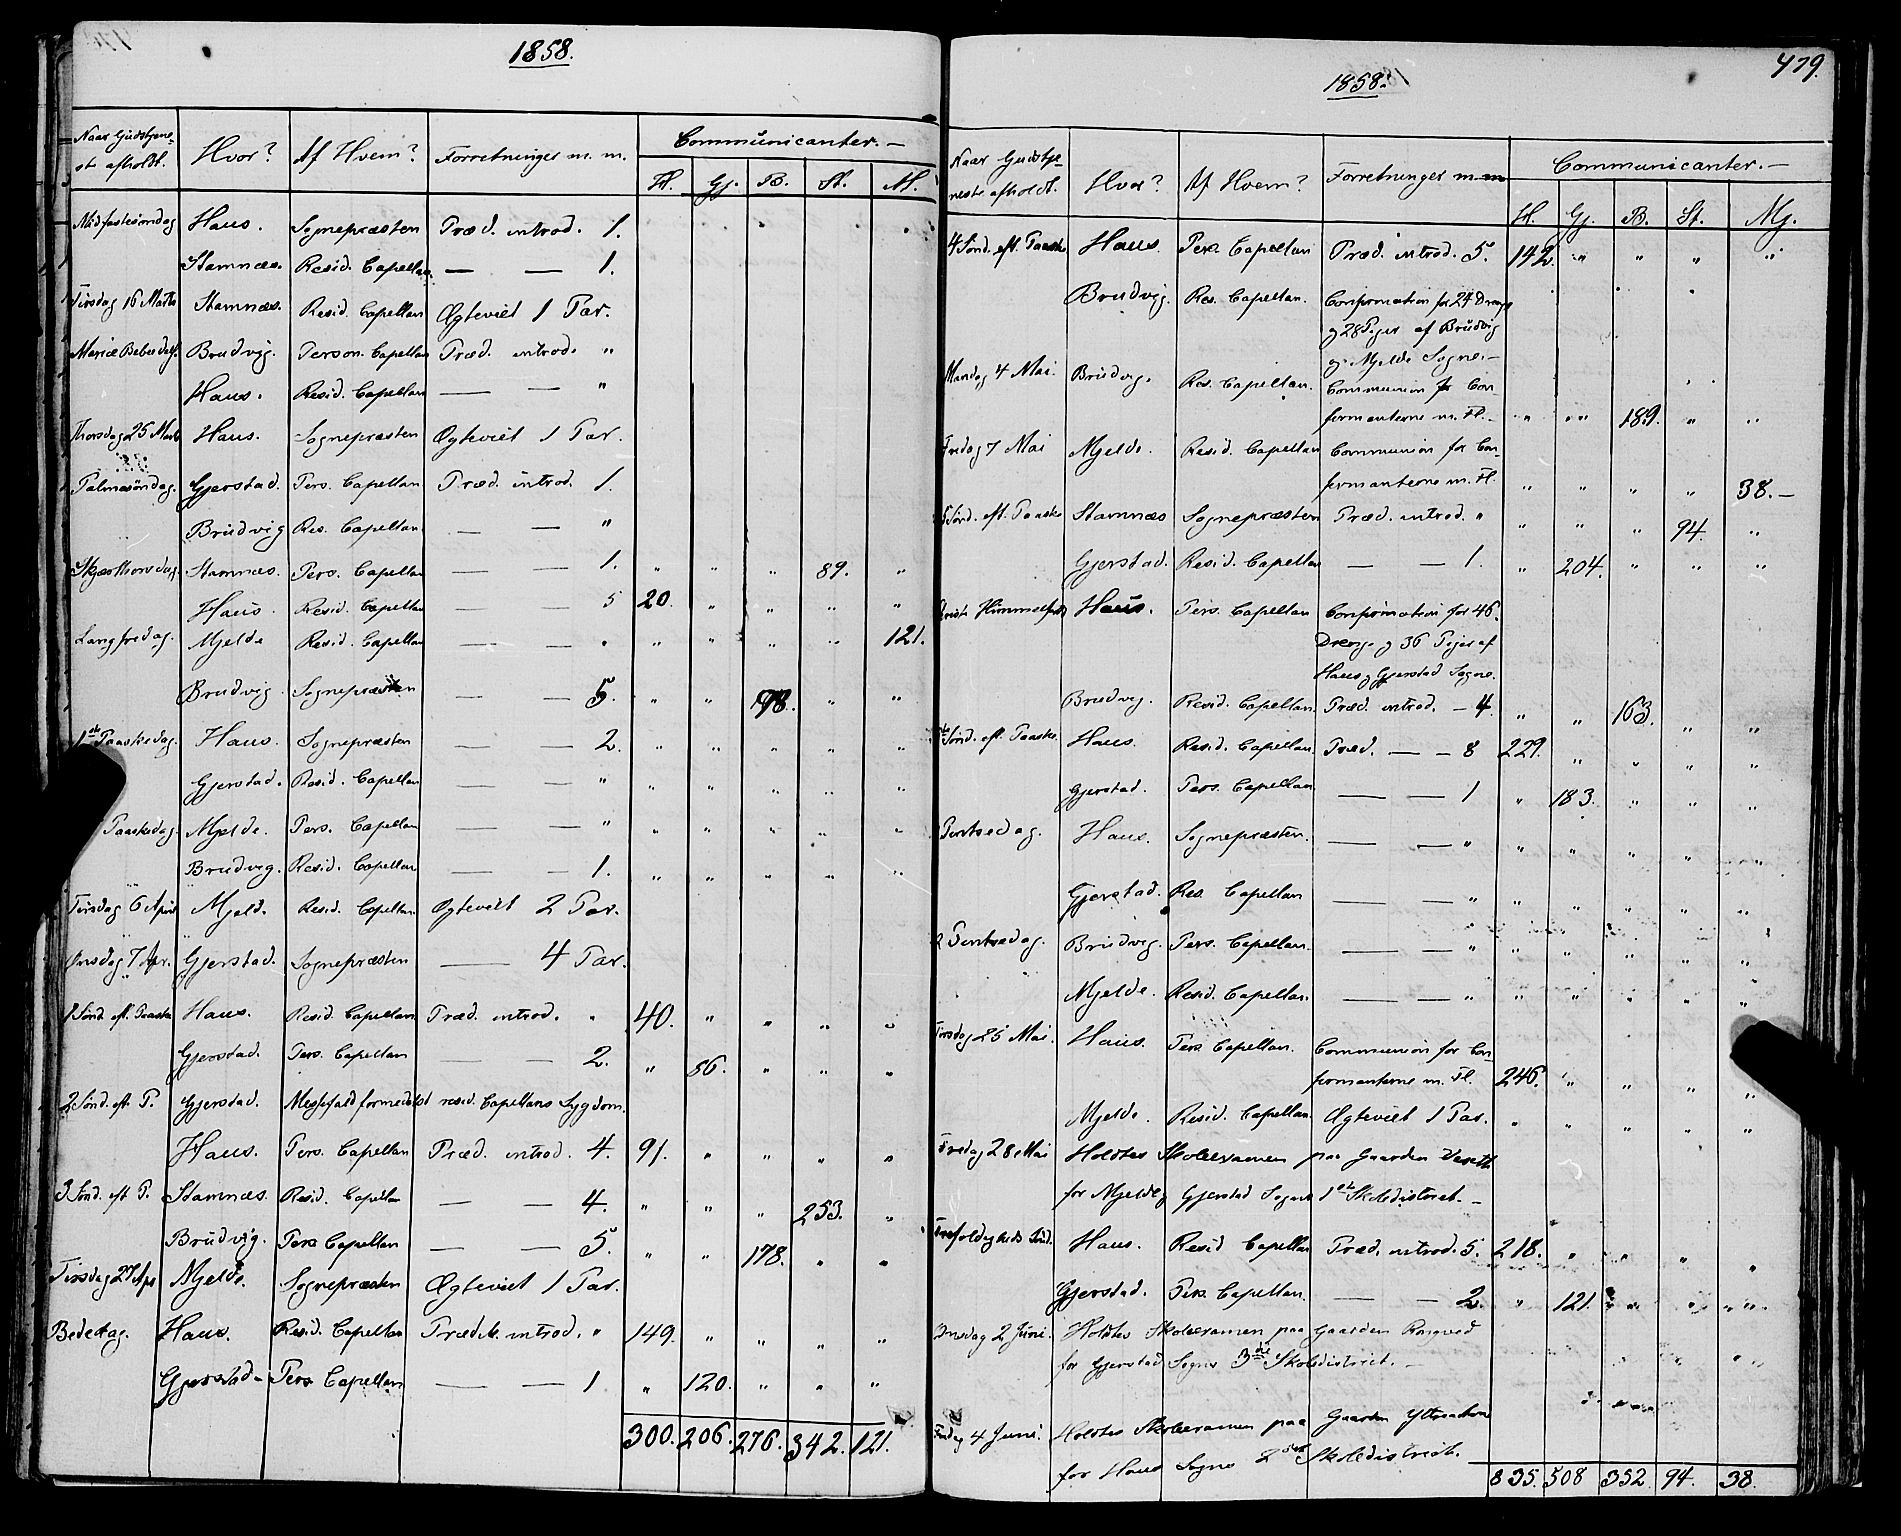 1858.
Naar Gudstjene-
ste afholdt. Hvor? Af Hvem? Forretninger m. m. Communicanter.-
H. Gj. B. St. M.
Midfastesøndag Haus. Sognepræsten Præd. introd. 1.
Stamnæs. Resid. Capellan. — — 1.
Tirsdag 16 Marts Stamnæs. Resid. Capellan Ægteviet 1 Par.
Mariæ Bebud. Brudvig. Person. Capellan Præd. introd. "
Haus. Resid. Capellan — — "
Thorsdag 25 Marts Haus. Sognepræsten Ægteviet 1 Par.
Palmesøndag. Gjerstad. Pers. Capellan Præd. introd. 1.
Brudvig Res. Capellan. — — "
Skjærthorsdag. Stamnæs. Pers. Capellan — — 1. " " " 89. "
Haus. Resid. Capellan — — 5 20. " " " "
Langfredag. Mjelde Resid. Capellan — — " " " " " 121.
Brudvig. Sognepræsten — — 5. " " 98. " "
1ste Paaskedag. Haus. Sognepræsten — — 2. " " " " "
Gjerstad. Resid. Capellan — — " " " " " "
Paaskedag. Mjelde. Pers. Capellan — — " " " " " "
Brudvig. Resid. Capellan — — 1. " " " " "
Tirsdag 6 April Mjelde. Resid. Capellan Ægteviet 2 Par.
Onsdag 7 Apr. Gjerstad. Sognepræsten — 4 Par.
1 Sønd. eft. Paaske Haus. Resid. Capellan Præd. introd. " 40. " " " "
Gjerstad. Pers. Capellan — — 2. " 86. " " "
2 Sønd. eft. P. Gjerstad. Messefald formedelst resid. Capellans Sygdom.
Haus. Pers. Capellan Præd. introd. 4. 91. " " " "
3 Sønd. eft P. Stamnæs. Resid. Capellan — — 4. " " " 253. "
Brudvig. Pers Capellan — — 5. " " 178. " "
Tirsdag 27 Apr Mjelde. Sognepræsten Ægteviet 1 Par.
Bededag. Haus. Resid. Capellan Prædik. introd. " 149. " " " "
Gjerstad. Pers. Capellan — — 1 " 120. " " "
300. 206. 276. 342. 121.
479.
1858.
Naar Gudstje-
neste afholdt. Hvor? Af Hvem? Forretninger m. m Communicanter.-
H. Gj. B. St. Mj.
4 Sønd. eft. Paaske Haus. Pers. Capellan Præd. introd. 5. 142. " " " "
Brudvig. Res. Capellan. Confirmation for 24 Drenge
og 28 Piger af Brudvig
og Mjelde Sogne.-
Mandag 4 Mai. Brudvig. Res. Capellan. Communion for Con-
firmanterne m. Fl. " " 189. " "
Fredag 7 Mai Mjelde. Resid. Capellan Communion for Con-
firmanterne m. Fl. " " " " 38.-
5 Sønd. eft. Paaske Stamnæs Sognepræsten Præd. introd. " " " " 94. "
Gjerstad. Resid. Capellan — — 1. " 204. " " "
Christi Himmelfart Haus. Pers. Capellan Confirmation for 46
Drenge og 36 Piger af
Haus og Gjerstad Sogne.
Brudvig. Resid. Capellan. Præd. introd. - 4. " " 163. " "
Sønd. eft. Paaske. Haus. Resid. Capellan. Præd. — — 8 229. " " " "
Gjerstad. Pers. Capellan. — — 1 " 183. " " "
Pintsedag. Haus. Sognepræsten. — — " " " " " "
Gjerstad. Res. Capellan — — " " " " " "
2 Pintsedag. Brudvig. Pers. Capellan. — — " " " " " "
Mjelde. Resid. Capellan. — — " " " " " "
Tirsdag 25 Mai. Haus. Pers. Capellan. Communion for Con-
firmanterne m. Fl. 246. " " " "
Mjelde. Resid. Capellan. Ægteviet 1 Par. " " " " "
Fredag 28 Mai Holdtes Skoleexamen paa Gaarden
for Mjelde og Gjerstad Sogns 1ste Skoledistrict.-
Trefoldigheds Sønd. Haus. Resid Capellan Præd. introd. 5. 218. " " " "
Gjerstad. Pers. Capellan. — — 2. " 121. " " "
Onsdag 2 Juni. Holdtes Skoleexamen paa Gaarden
for Gjerstad Sogns 3die Skoledistrict.-
Fredag 4 Juni. Holdtes Skoleexamen paa Gaarden
for Haus Sogns 2det Skoledistrict.
835. 508 352 94. 38.